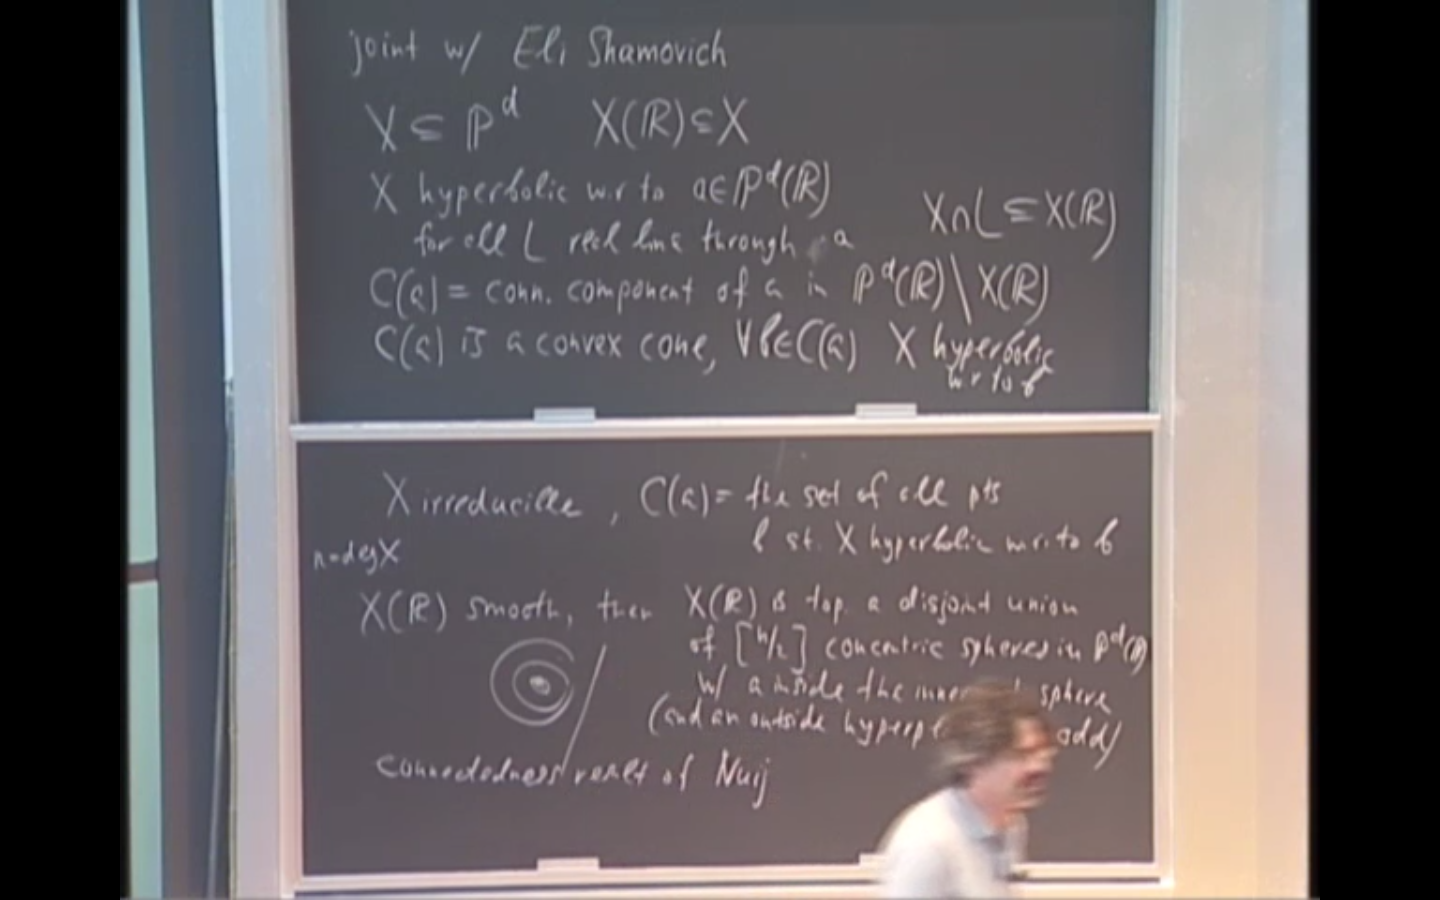 joint w/ Eli Shamovich
X ⊆ ℙ^d X(ℝ) ⊆ X
X hyperbolic w.r to a ∈ ℙ^d(ℝ)
for all L real line through a X ∩ L ⊆ X(ℝ)
C(a) = conn. component of a in ℙ^d(ℝ) \ X(ℝ)
C(a) is a convex cone, ∀b ∈ C(a) X hyperbolic
w r to b
X irreducible, C(a) = the set of all pts
b st. X hyperbolic w.r. to b
n = deg X
X(ℝ) smooth, then X(ℝ) is top. a disjoint union
of [n/2] concentric spheres in ℙ^d(ℝ)
w/ a inside the sphere
(and an outside odd)
connectedness result of Nuij